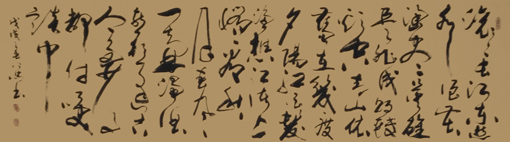 滚滚长江东逝
水浪花
淘尽英雄
是非成败转
头空青山依
旧在几度
夕阳红白发
渔樵江渚上
惯看秋
月春风
一壶浊酒
喜相逢古
今多少事
都付笑
谈中
戊戌